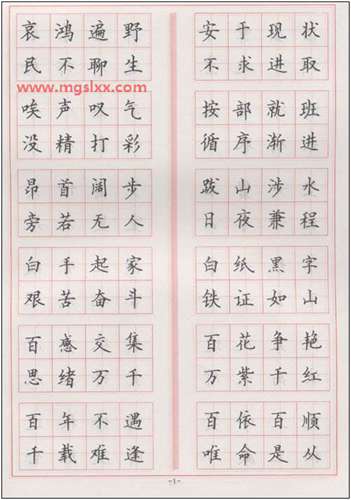 哀鸿遍野
民不聊生
www.mgslxx.com
唉声叹气
没精打彩
昂首阔步
旁若无人
白手起家
艰苦奋斗
百感交集
思绪万千
百年不遇
千载难逢
安于现状
不求进取
按部就班
循序渐进
跋山涉水
日夜兼程
白纸黑字
铁证如山
百花争艳
万紫千红
百依百顺
唯命是从
-1-